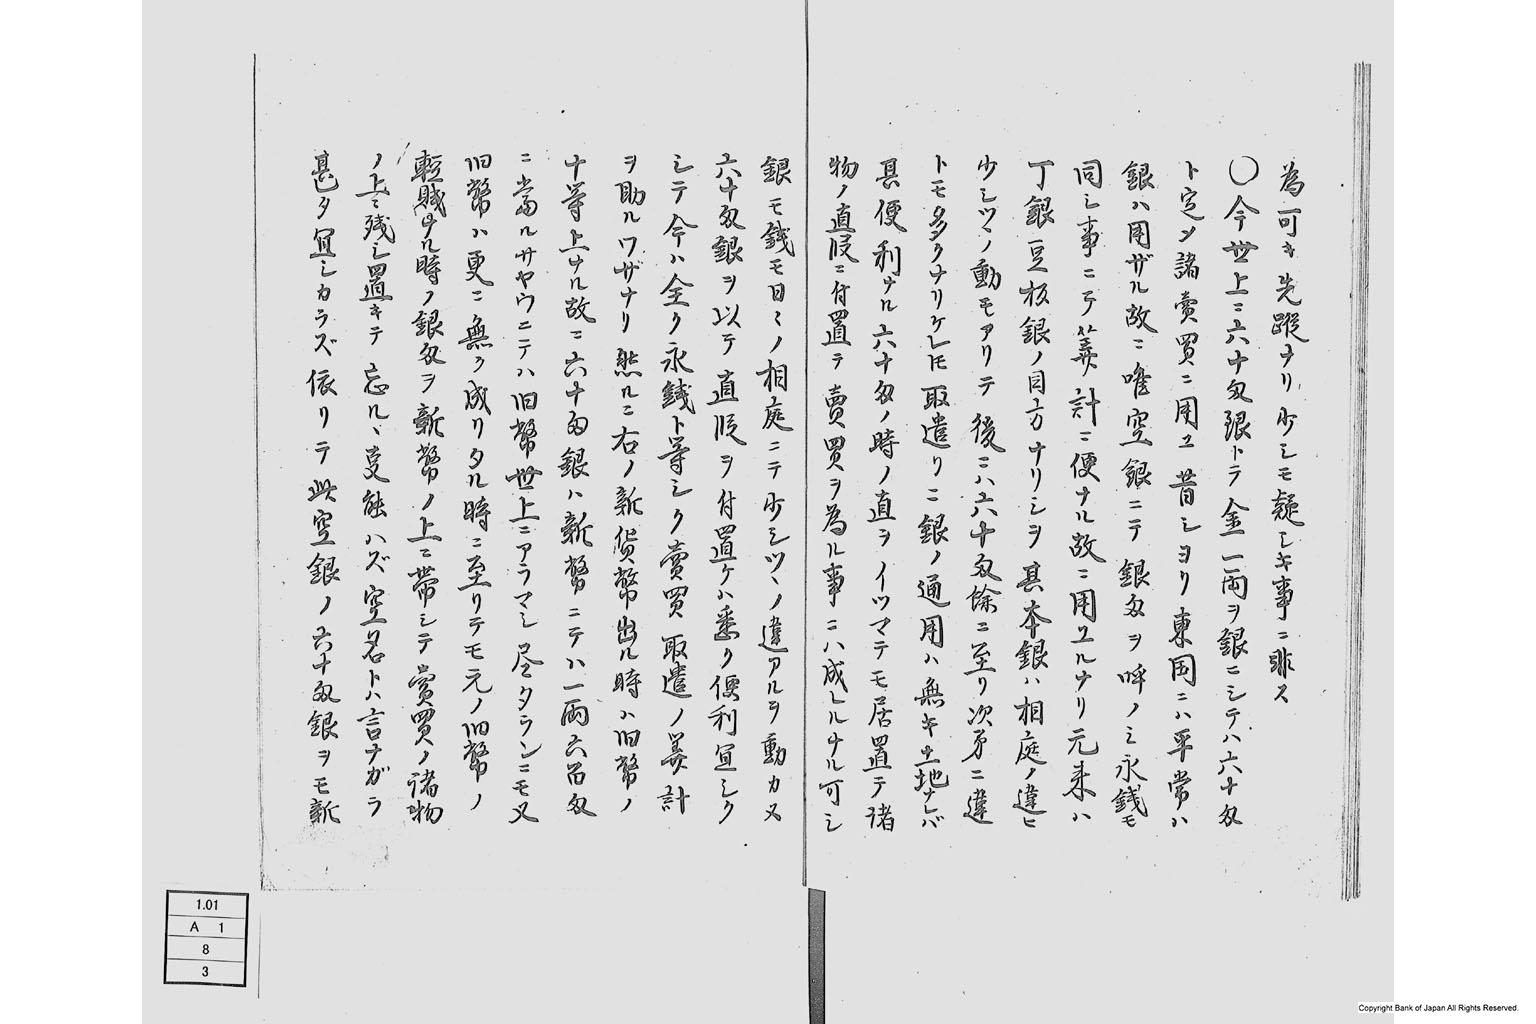 為可キ先蹤ナリ少シモ疑シキ事ニ非ス
〇今世上ニ六十匁銀トテ金一両ヲ銀ニシテハ六十匁
ト定メ諸賣買ニ用ユ昔シヨリ東国ニハ平常ハ
銀ハ用ザル故ニ唯空銀ニテ銀匁ヲ呼ノミ永銭モ
同シ事ニテ筭計ニ便ナル故ニ用ユルナリ元来ハ
丁銀豆板銀ノ目方ナリシヲ其本銀ハ相庭ノ違ヒ
少シツヽノ動モアリテ後ニハ六十匁餘ニ至リ次第ニ違
トモ多クナリケレ𪜈取遣リニ銀ノ通用ハ無キ土地ナレバ
其便利ナル六十匁ノ時ノ直ヲイツマテモ居置テ諸
物ノ直段ニ付置テ賣買ヲ為ル事ニハ成レルナル可シ
銀モ銭モ日〻ノ相庭ニテ少シツヽノ違アルヲ動カヌ
六十匁銀ヲ以テ直段ヲ付置ケハ悉ク便利宜シク
シテ今ハ全ク永銭ト等シク賣買取遣ノ筭計
ヲ助ルワザナリ然ルニ右ノ新貨幣出ル時ハ旧幣ノ
十等上ナル故ニ六十匁銀ハ新幣ニテハ一両六百匁
ニ當ルサヤウニテハ旧幣世上ニアラマシ尽タランニモ又
旧幣ハ更ニ無ク成リタル時ニ至リテモ元ノ旧幣ノ
軽賤ナル時ノ銀匁ヲ新幣ノ上ニ帯シテ賣買ノ諸物
ノ上ニ残シ置キテ忘ルヽ䓁能ハズ空名トハ言ナガラ
甚タ宜シカラズ依リテ此空銀ノ六十匁銀ヲモ新
1.01
A 1
8
3
Copyright Bank of Japan All Rights Reserved.